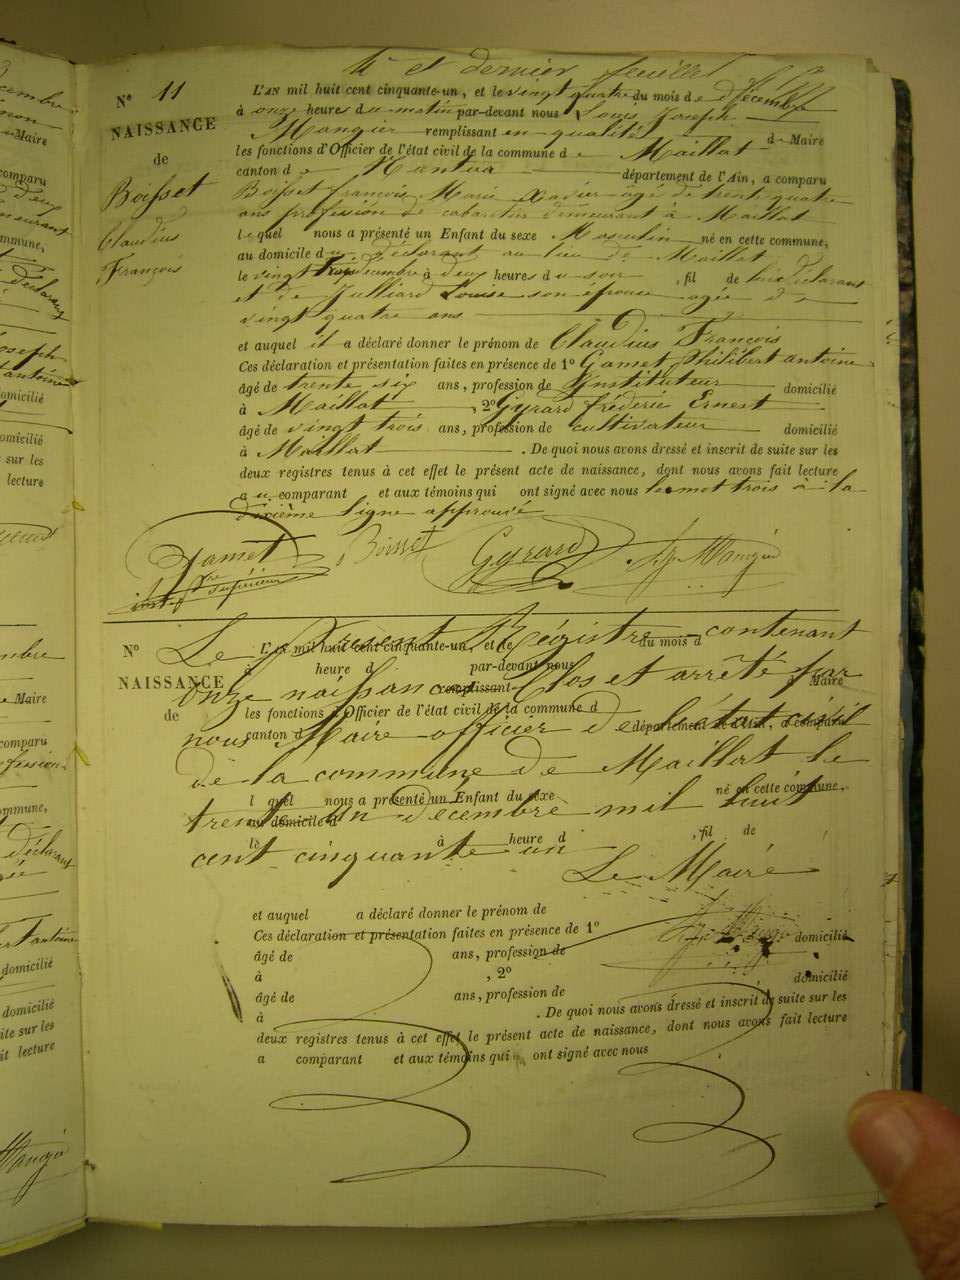 4e et dernier feuillet
N° 11
NAISSANCE
de
Boisset
Claudius
François
L'AN mil huit cent cinquante-un, et le vingt quatre du mois de décembre
à onze heures du matin par-devant nous Louis Joseph
Mangier remplissant en qualité de Maire
les fonctions d'Officier de l'état civil de la commune de Maillat
canton de Nantua département de l'Ain, a comparu
Boisset françois Marie Xavier agé de trente quatre
ans profession de cabaretier demeurant à Maillat
lequel nous a présenté un Enfant du sexe Masculin né en cette commune,
au domicile du déclarant au lieu de Maillat
le vingt trois décembre à deux heures du soir , fil de lui déclarant
et de Julliard Louise son épouse agée de
vingt quatre ans
et auquel il a déclaré donner le prénom de Claudius François
Ces déclaration et présentation faites en présence de 1° Gamet Philibert antoine
âgé de trente six ans, profession de Instituteur domicilié
à Maillat , 2° Gyrard fréderic Ernest
âgé de vingt trois ans, profession de cultivateur domicilié
à Maillat . De quoi nous avons dressé et inscrit de suite sur les
deux registres tenus à cet effet le présent acte de naissance, dont nous avons fait lecture
au comparant et aux témoins qui ont signé avec nous le mot trois à la
dixième ligne approuvé
Gamet Boisset Gyrard
instre supérieur
N°
NAISSANCE
de
L'AN mil huit cent cinquante-un, et le du mois d
Le Présent Régistre contenant
à heure d par-devant nous
onze naissances Clos et arrêté par
remplissant Maire
les fonctions d'Officier de l'état civil de la commune d
nous Maire officier de l'état civil
canton d département de l'Ain, a comparu
de la commune de Maillat le
l quel nous a présenté un Enfant du sexe né en cette commune,
trente un décembre mil huit
au domicile d
le à heure d , fil de
cent cinquante un
Le Maire
et auquel a déclaré donner le prénom de
Ces déclaration et présentation faites en présence de 1°
âgé de ans, profession de domicilié
à , 2°
âgé de ans, profession de domicilié
à . De quoi nous avons dressé et inscrit de suite sur les
deux registres tenus à cet effet le présent acte de naissance, dont nous avons fait lecture
a comparant et aux témoins qui ont signé avec nous